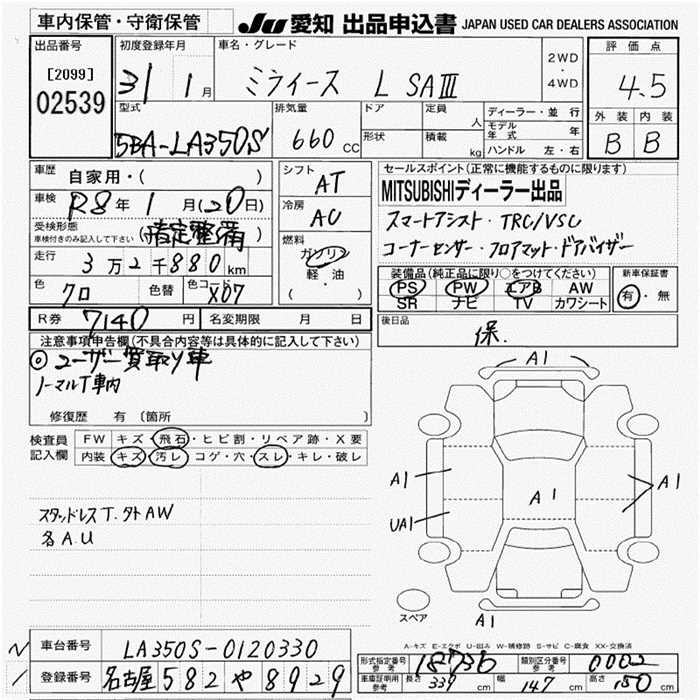 車内保管・守衛保管 JU 愛知 出品申込書 JAPAN USED CAR DEALERS ASSOCIATION
出品番号 初度登録年月 車名・グレード 2WD・4WD 評価点
[2099] 31 1月 ミライース L SAⅢ 4.5
02539 型式 排気量 ドア 定員 人 ディーラー・並行 外装 内装
5BA-LA350S 660cc 形状 積載 kg モデル年式 年 B B
ハンドル 左・右
車歴 自家用・( ) シフト AT セールスポイント(正常に機能するものに限ります)
車検 R8年1月(20日) 冷房 AC MITSUBISHIディーラー出品
受検形態 車検付きのみ記入して下さい (指定整備) スマートアシスト・TRC/VSC
走行 3万2千880km 燃料 ガソリン コーナーセンサー・フロアマット・ドアバイザー
軽・油
( )
色 クロ 色替 色コード X07 装備品(純正品に限り○をつけてください) 新車保証書
PS PW エアB AW 有・無
SR ナビ TV カワシート
R券 7140円 名変期限 月 日 後日品
保.
注意事項申告欄(不具合内容等は具体的に記入して下さい)
◎ユーザー買取り車
ノーマルT車内
修復歴 有 〔箇所
検査員記入欄 FW キズ・飛石・ヒビ割・リペア跡・X要
内装 キズ・汚レ・コゲ・穴・スレ・キレ・破レ
スタッドレスT.社外AW
各A.U
A1
A1
UA1
A1
A1
スペア
A1
A-キズ E-エクボ U-凹み W-補修跡 S-サビ C-腐食 XX-交換済
車台番号 LA350S-0120330
登録番号 名古屋 582 や 8929
形式指定番号 参考 18736 類別区分番号 参考 0002
車庫証明用 参考 長さ 339cm 幅 147cm 高さ 150cm